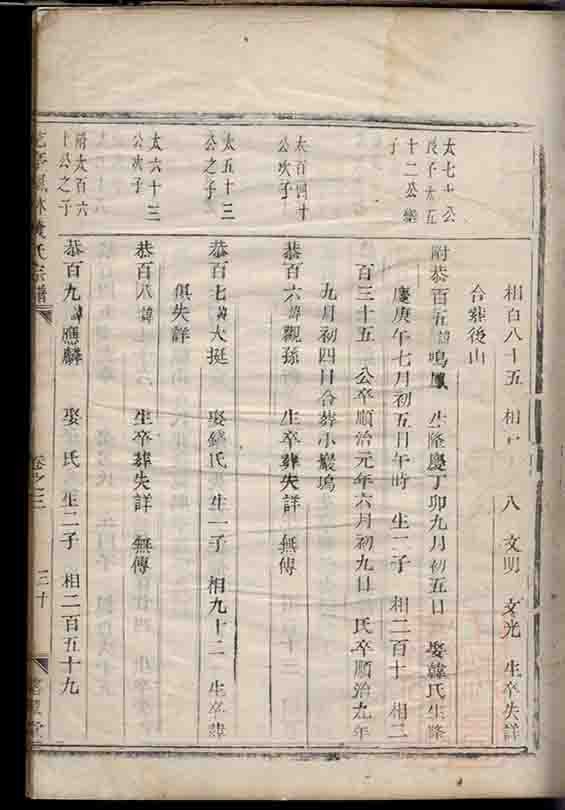 相百八十五 相 八 文明 文光 生卒失詳
合葬後山
太七十公
長子太五
十二公繼
子
附恭百五諱鳴鳳 生隆慶丁卯九月初五日 娶韓氏生隆
慶庚午七月初五日午時 生二子 相二百十 相三
百三十五 公卒順治元年六月初九日 氏卒順治九年
九月初四日合葬小巖塢
太百四十
公次子
恭百六諱觀孫 生卒葬失詳 無傳
太五十三
公之子
恭百七諱大挺 娶錢氏 生一子 相九十二 生卒諱
俱失詳
太六十三
公次子
恭百八諱 生卒葬失詳 無傳
附太百六
十公之子
恭百九諱應麟 娶 氏 生二子 相二百五十九
林黃氏宗譜 卷之三 三十